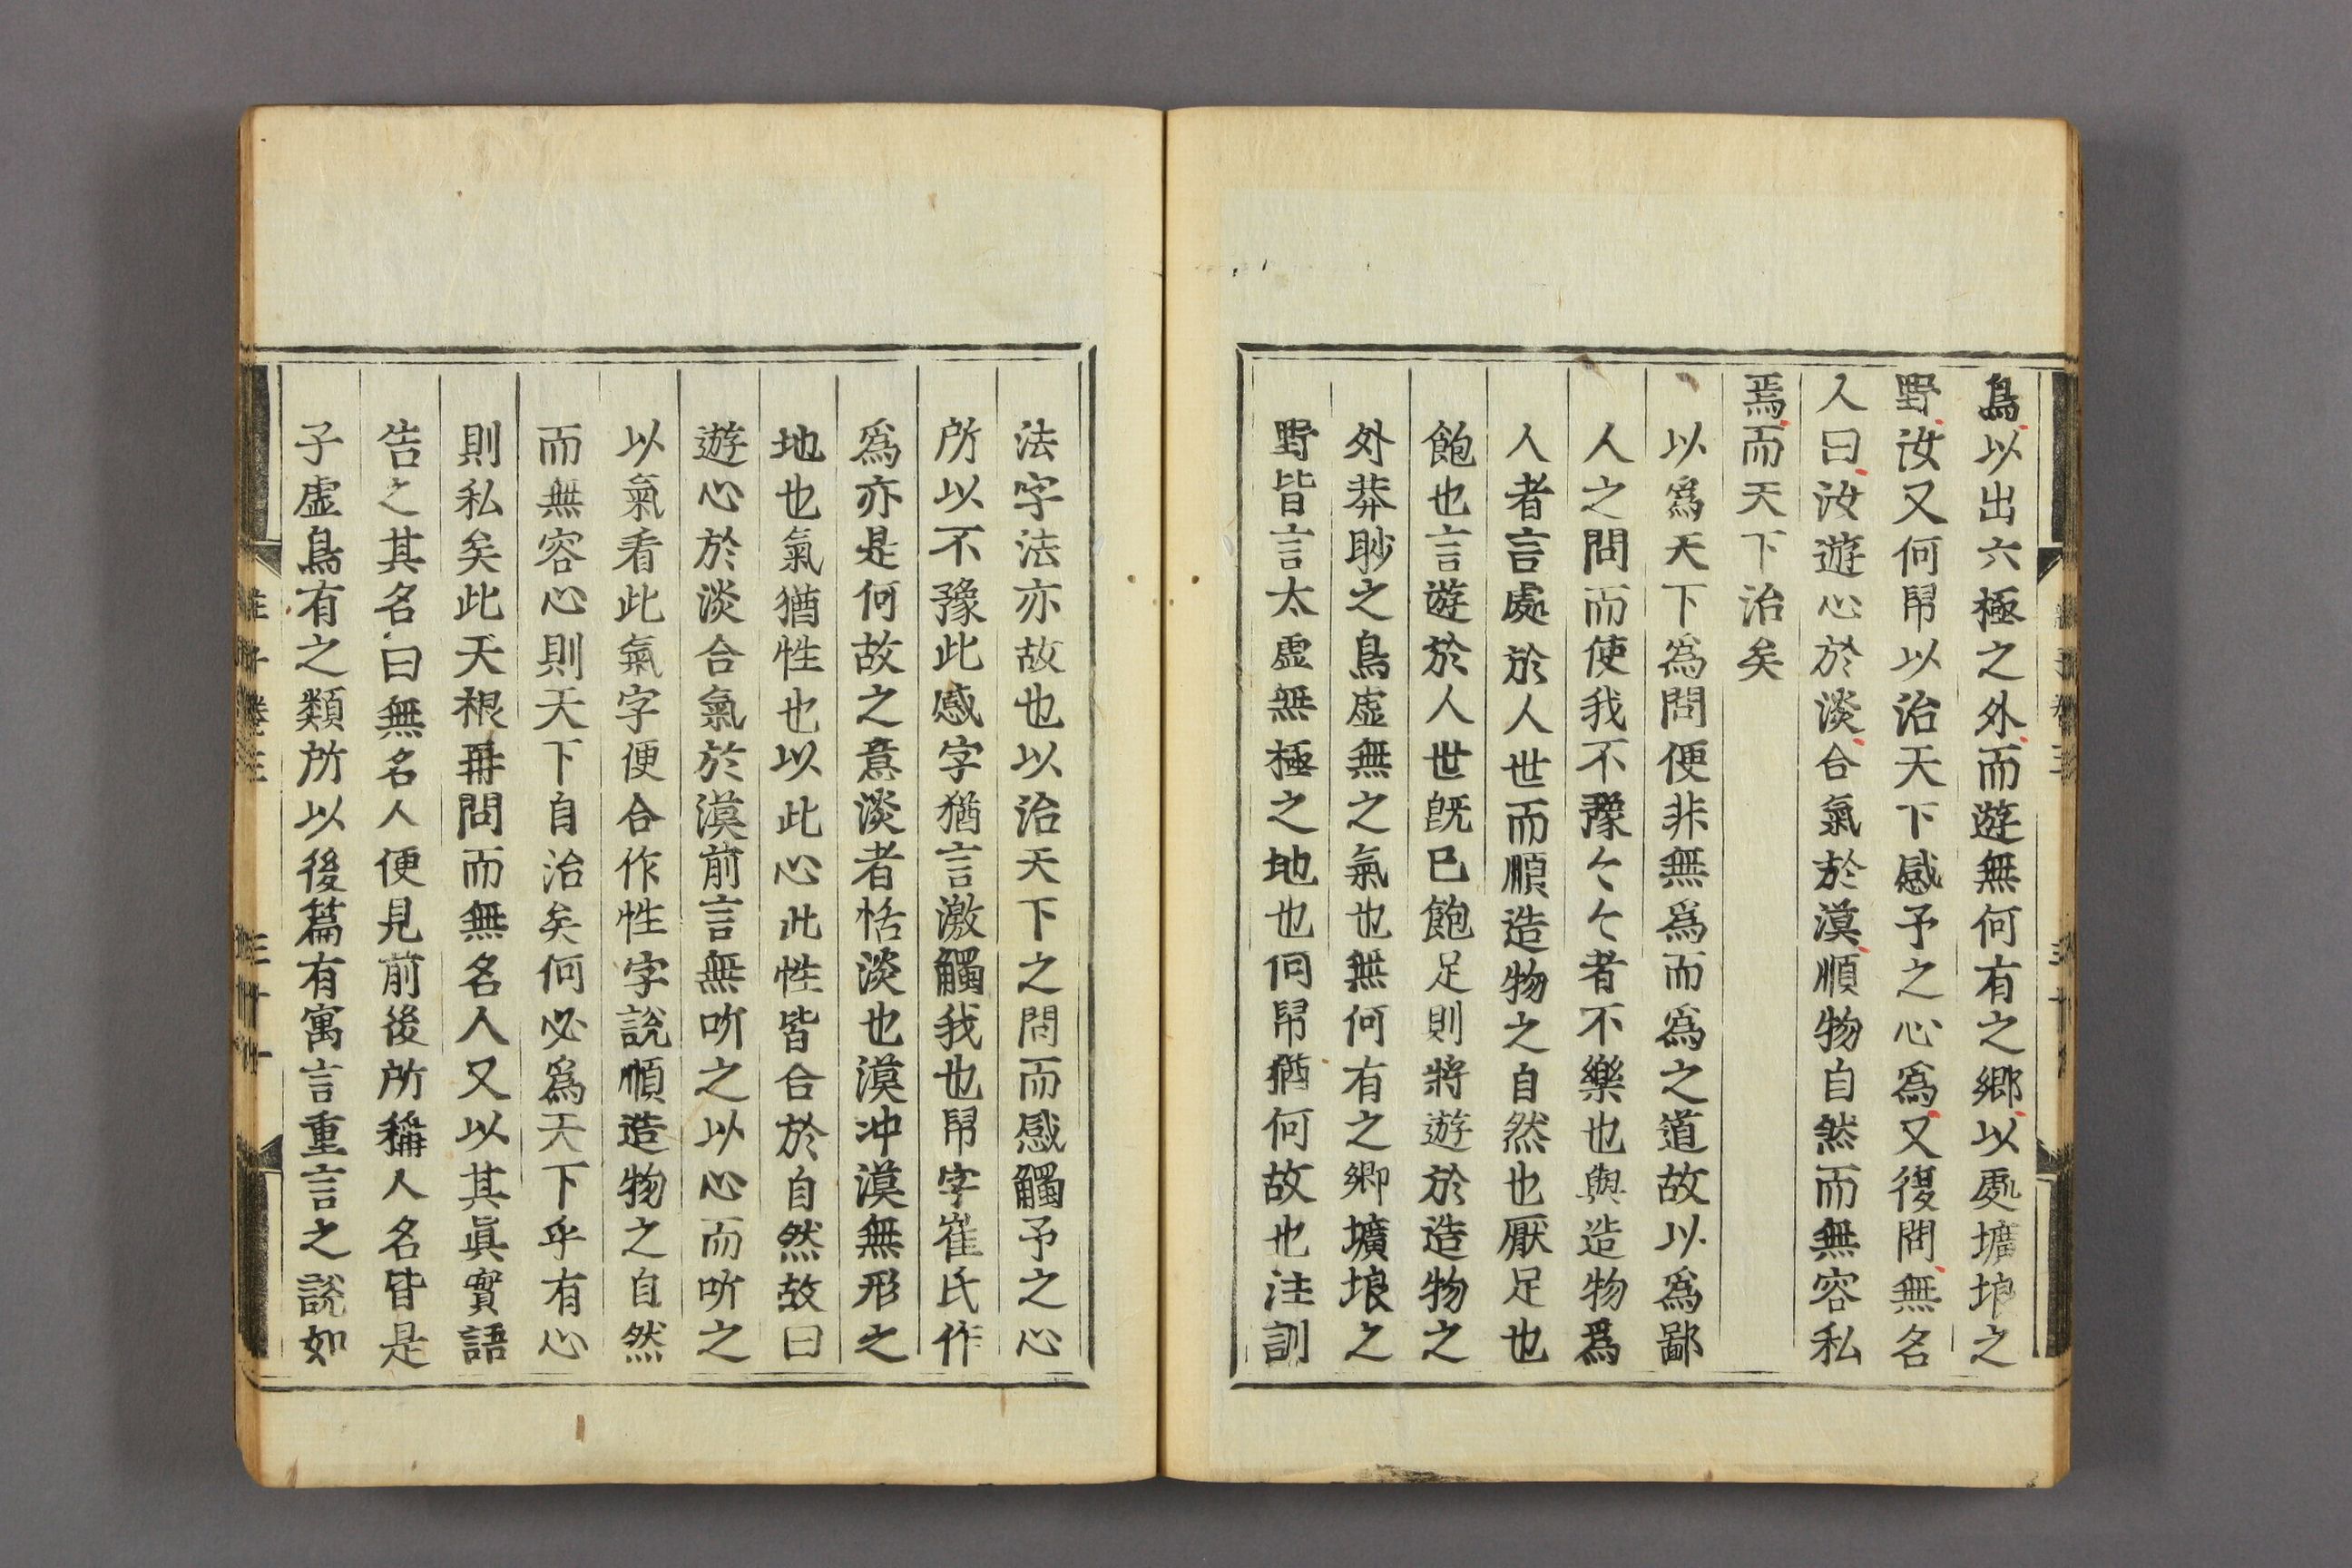 鳥以出六極之外而遊無何有之鄉以處壙埌之
野汝又何帠以治天下感予之心爲又復問無名
人曰汝遊心於淡合氣於漠順物自然而無容私
焉而天下治矣
以爲天下爲問便非無爲而爲之道故以爲鄙
人之問而使我不豫々々者不樂也與造物爲
人者言處於人世而順造物之自然也厭足也
飽也言遊於人世旣已飽足則將遊於造物之
外莽眇之鳥虛無之氣也無何有之鄉壙埌之
野皆言太虛無極之地也何帠猶何故也注訓
法字法亦故也以治天下之問而感觸予之心
所以不豫此感字猶言激觸我也帠字崔氏作
爲亦是何故之意淡者恬淡也漠冲漠無形之
地也氣猶性也以此心此性皆合於自然故曰
遊心於淡合氣於漠前言無听之以心而听之
以氣看此氣字便合作性字說順造物之自然
而無容心則天下自治矣何必爲天下乎有心
則私矣此天根再問而無名人又以其眞實語
告之其名曰無名人便見前後所稱人名皆是
子虛鳥有之類所以後篇有寓言重言之說如